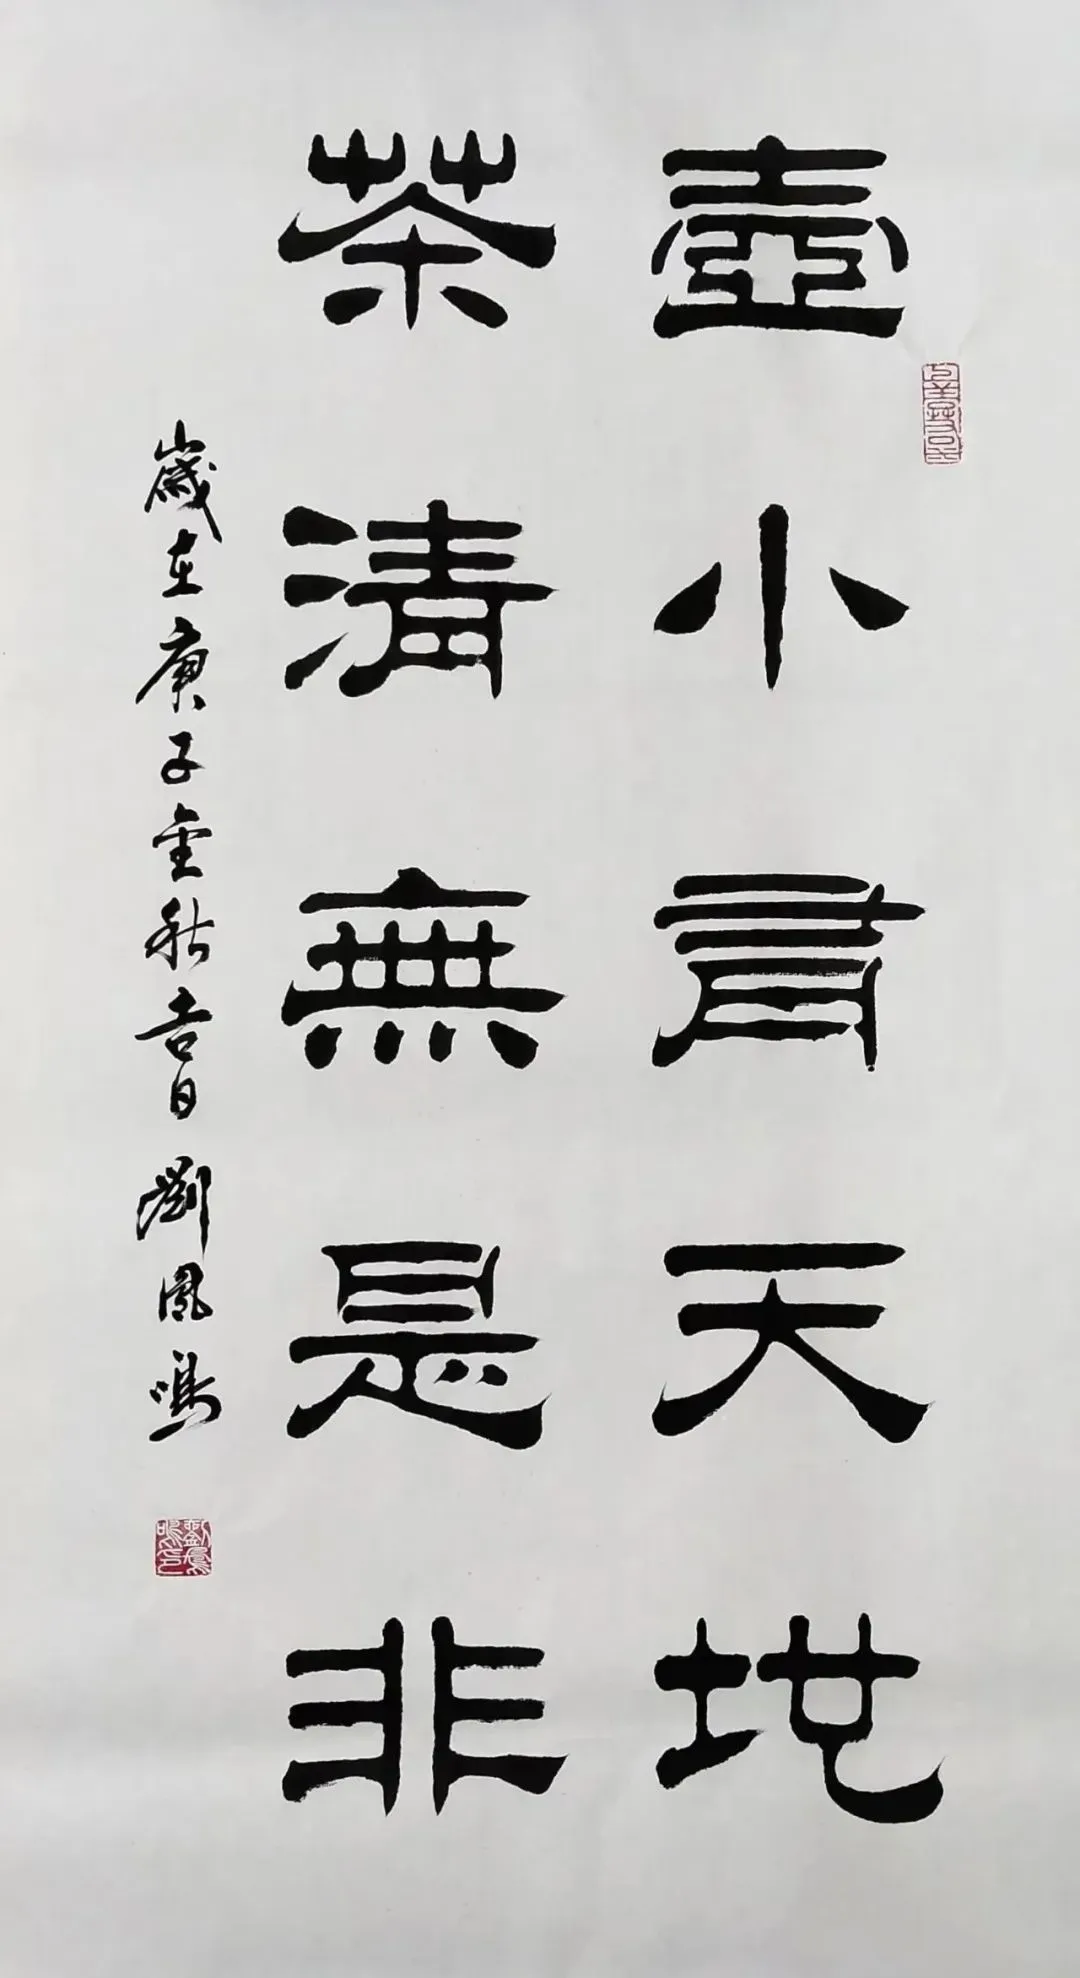 壺小有天地
茶清無是非
歲在庚子金秋吉日劉鳳鳴